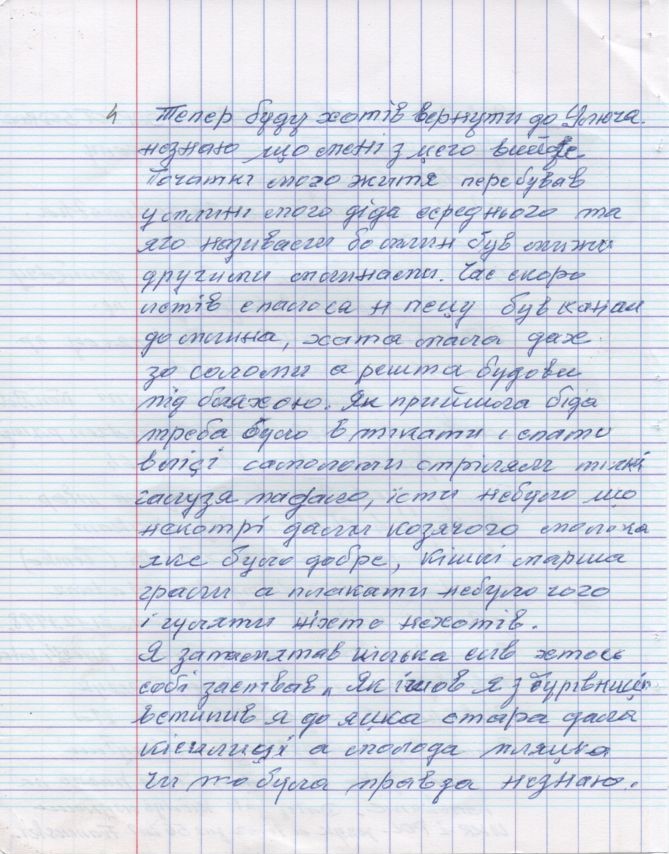 4 Тепер буду хотів вернути до Улюча.
незнаю що мені з цего вийде
Початки мого житя перебував
у млині мого діда середнього та
яго називали бо млин був межи
другими млинами. Час скоро
летів спалося н пецу був канал
до млина, хата мала дах
зо соломи а решта будови
під бляхою. Як прийшла біда
треба було втікати і спати
в лісі самольоти стріляли тількі
галузя падало, їсти небуло що
некотрі дали козячого молока
яке було добре, кішкі марша
грали а плакати небуло чого
і гуляти ніхто нехотів.
Я запамятав кілька слів хтось
собі заспівав „ Як ішов я з
вступив я до яцка стара дала
кісилиці а молода пляцка
чи то була правда незнаю.